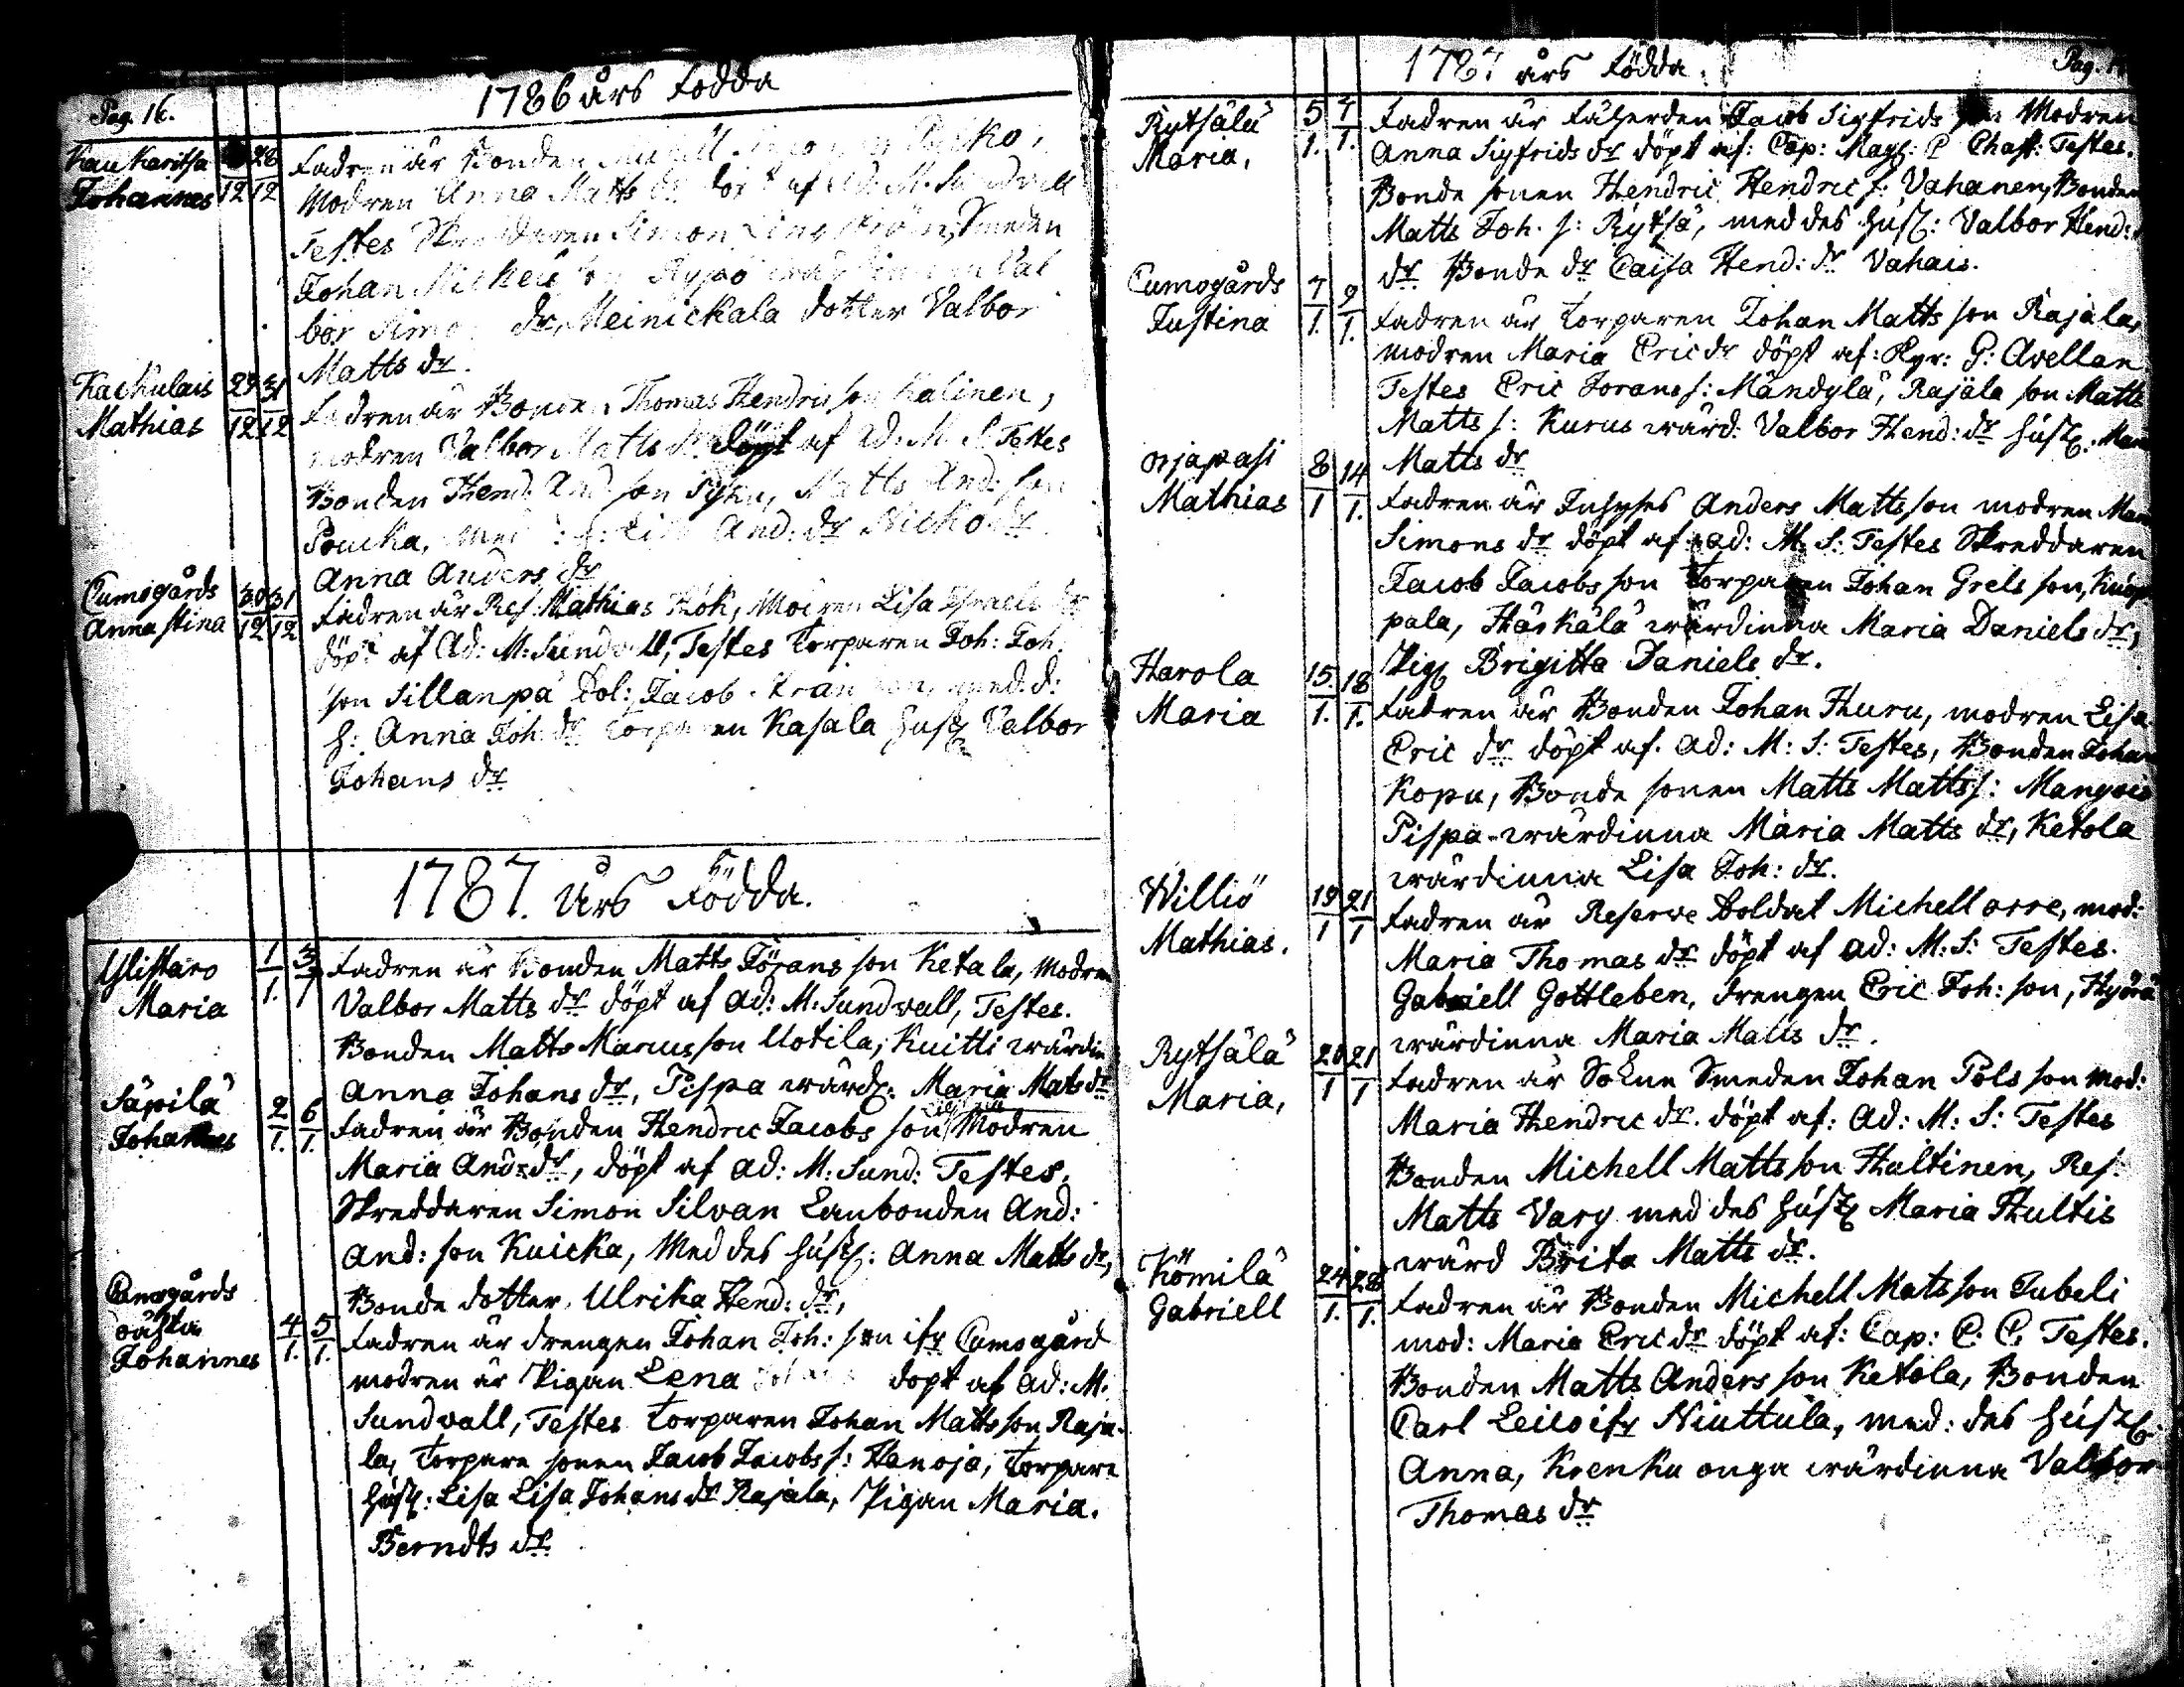 Pag. 16.
1786 års Födda
Kaukaritsa 28
Johannes 12 12
Fadren är Bonden
Modren Anna Matts dr döpt af Ad: M. Sundvall
Testes Skreddaren Simon Smeden
Johan
bor Simo dr, Meinickala dotter Valbor
Matts dr.
Kackulais 29 31
Mathias 12 12
Fadren är Bonden Thomas Hendricson Kalinen,
modren Valbor Matts dr döpt af Ad: M. S. Testes
Bonden Hend: And: son Matts And: son
And: dr
Anna Anders dr
Cumogårds 30 31
Anna Stina 12 12
Fadren är Res: Mathias Kök, Modren Lisa Israels dr
döpt af Ad: M: Sundvall, Testes Torparen Joh: Joh:
son Sillanpä Sol: Jacob med d:
h: Anna Joh: dr Torparen Kasala hust Valbor
Johans dr
1787. Års Födda.
Ylistaro 1 3
Maria 1. 1
Fadren är Bonden Matts Jörans son Ketala, Modren
Valbor Matts dr döpt af Ad: M: Sundwall, Testes.
Bonden Matts Marcus son Uotila, Kuitti wärdin
Anna Johans dr, Pispa wärd: Maria Mats dr
Säpilä 2 6
Johannes 1. 1.
Fadren är Bonden Hendric Jacobs son Modren
Maria And: dr, döpt af Ad: M: Sund: Testes,
Skreddaren Simon Silvan Lanbonden And:
And: son Kuicka, Med des hust: Anna Matts dr,
Bonde dotter Ulrika Hend: dr,
Cumogårds
oäkta 4 5
Johannes 1. 1.
Fadren är drengen Johan Joh: son ifr Cumogård
modren är Pigan Lena döpt af Ad: M.
Sundvall, Testes Torparen Johan Matts son Raja-
la, Torpare sonen Jacob Jacobs s: Hanoja, Torpare
hust: Lisa Lisa Johans dr Rajala, Pigan Maria.
Berndts dr
1787 års Födda.
Pag.
Rytsälä 5 7
Maria, 1. 1.
Fadren är Fäherden Jacob Sigfrids son Modren
Anna Sigfrids dr döpt af: Cap: Mag: Testes.
Bonde sonen Hendric Hendric s: Vahanen, Bonden
Matts Joh. s: Rytsä, med des hust: Valbor Hend:
dr Bonde dr Caisa Hend: dr Vahais.
Cumogårds 7 9
Justina 1. 1.
Fadren är Torparen Johan Matts son Rajala,
modren Maria Eric dr döpt af: Kyr: G: Avellan
Testes Eric Jorans s: Mändylä, Rajala son Matts
Matts s: Kurus wärd: Valbor Hend: dr hust:
Matts dr
Orjapasi 8 14
Mathias 1 1.
Fadren är Inhyses Anders Matts son modren
Simons dr döpt af Ad: M: S: Testes Skreddaren
Jacob Jacobs son Torparen Johan Grels son,
pala, Häskälä wärdinna Maria Daniels dr,
Pig: Brigitta Daniels dr.
Harola 15. 18
Maria 1. 1.
Fadren är Bonden Johan Huru, modren Lisa
Eric dr döpt af. Ad: M: S: Testes, Bonden Johan
Kopu, Bonde sonen Matts Matts s: Mangois
Pispa-wärdinna Maria Matts dr, Ketola
wärdinna Lisa Joh: dr.
Williö 19 21
Mathias. 1 1
Fadren är Reserve Soldat Michell orre, mod:
Maria Thomas dr döpt af Ad: M: S: Testes.
Gabriell Gottleben, drengen Eric Joh: son, Hyörä
wärdinna Maria Matts dr.
Rytsälä 20 21
Maria, 1 1
Fadren är Sokne Smeden Johan Pols son mod:
Maria Hendric dr. döpt af: Ad: M: S: Testes
Bonden Michell Matts son Hultinen, Res:
Matts Varg med des hust Maria Hultis
wärd Brita Matts dr.
Kömilä 24 28
Gabriell 1. 1.
Fadren är Bonden Michell Mats son Jubeli
mod: Maria Eric dr döpt af: Cap: C: C, Testes.
Bonden Matts Anders son Ketola, Bonden
Carl ifr Niuttula, med: des hust:
Anna, Krenku onga wärdinna Valbor
Thomas dr